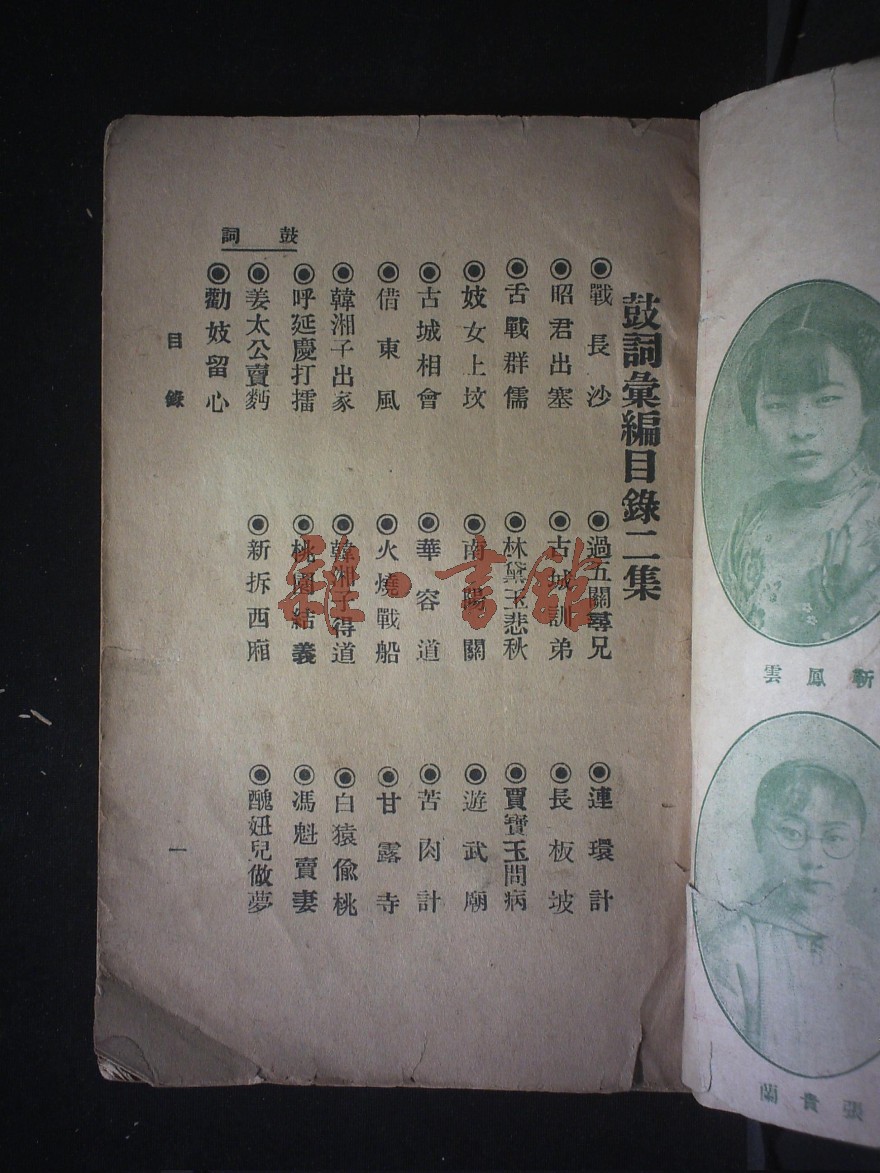 鼓詞彙編目錄二集
戰長沙
過五關尋兄
連環計
昭君出塞
古城訓弟
長板坡
舌戰群儒
林黛玉悲秋
賈寶玉問病
妓女上坟
南陽關
遊武廟
古城相會
華容道
苦肉計
借東風
火燒戰船
甘露寺
韓湘子出家
韓湘子得道
白猿偷桃
呼延慶打擂
桃園結義
馮魁賣妻
姜太公賣麪
新拆西廂
醜妞兒做夢
勸妓留心
鼓詞
目錄
一
靳鳳雲
張貴蘭
雜·書館